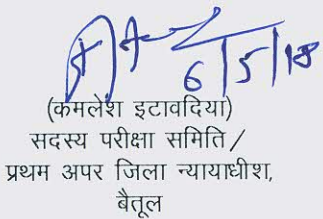 6/5/18
(कमलेश इटावदिया)
सदस्य परीक्षा समिति /
प्रथम अपर जिला न्यायाधीश,
बैतूल